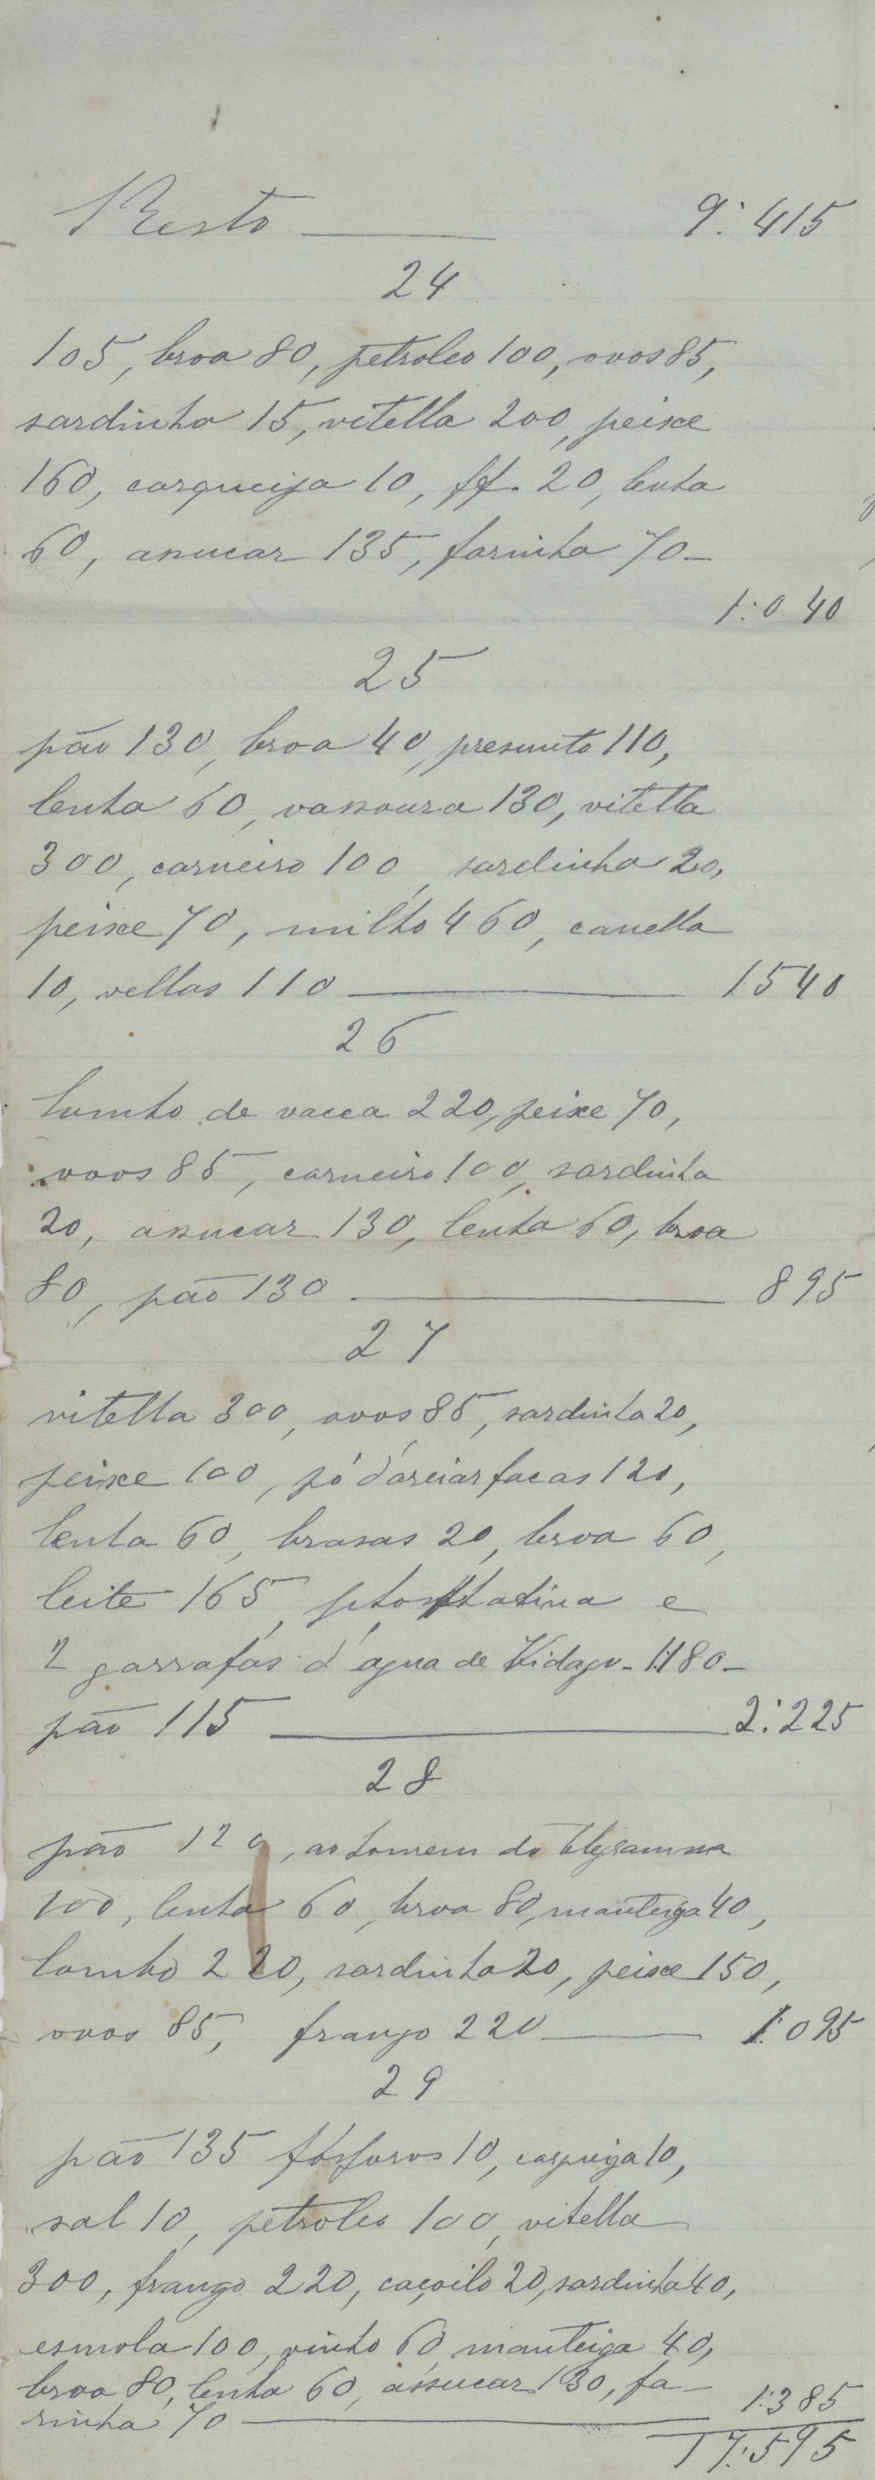 Resto 9:415
24
105, broa 80, petroleo 100, ovos 85,
sardinha 15, vitella 200, peixe
160, carqueija 10, ff. 20, lenha
60, assucar 135, farinha 70
1:040
25
pão 130, broa 40, presunto 110,
lenha 60, vassoura 130, vitella
300, carneiro 100, sardinha 20,
peixe 70, milho 460, canella
10, vellas 110 1540
26
lombo de vacca 220, peixe 70,
ovos 85, carneiro 100, sardinha
20, assucar 130, lenha 60, broa
80, pão 130 895
27
vitella 300, ovos 85, sardinha 20,
peixe 100, pó d'areiar facas 120,
lenha 60, brasas 20, broa 60,
leite 165, phosphatina e
2 garrafas d'agua de Vidago - 1:180 -
pão 115 2:225
28
pão 120, ao homem do telegramma
100, lenha 60, broa 80, manteiga 40,
lombo 220, sardinha 20, peixe 150,
ovos 85, frango 220 1:095
29
pão 135 fósforos 10, carqueija 10,
sal 10, petroleo 100, vitella
300, frango 220, caçoilo 20, sardinha 40,
esmola 100, vinho 60, manteiga 40,
broa 80, lenha 60, assucar 130, fa-
rinha 70 1:385
17:595